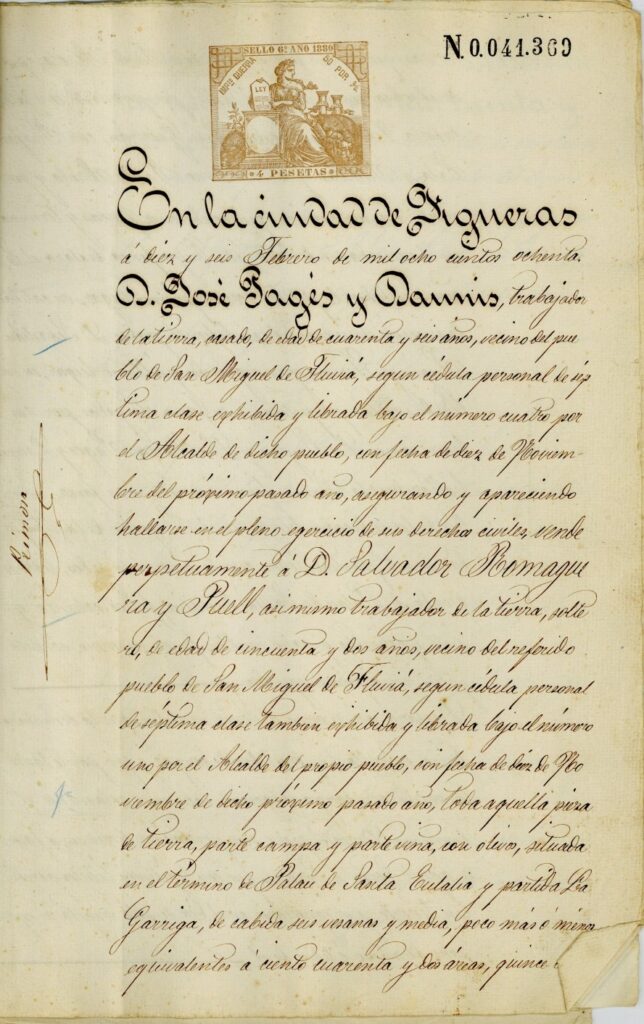 SELLO 6º AÑO 1880
IMPTO GUERRA
50 POR %
LEY
4 PESETAS
N.0.041.369
En la ciudad de Figueras
á diez y seis Febrero de mil ocho cientos ochenta.
D. José Pagés y Daunis, trabajador
de la tierra, casado, de edad de cuarenta y seis años, vecino del pue
blo de San Miguel de Fluviá, segun cédula personal de sép
tima clase exhibida y librada bajo el número cuatro por
el Alcalde de dicho pueblo, con fecha de diez de Noviem-
bre del próximo pasado año, asegurando y apareciendo
hallarse en el pleno egercicio de sus derechos civiles, vende
perpetuamente á D. Salvador Romague
ra y Puell, asimismo trabajador de la tierra, solte
ro, de edad de cincuenta y dos años, vecino del referido
pueblo de San Miguel de Fluviá, segun cédula personal
de séptima clase tambien exhibida y librada bajo el número
uno por el Alcalde del propio pueblo, con fecha de diez de No
viembre de dicho próximo pasado año, toda aquella pieza
de tierra, parte campa y parte viña, con olivos, situada
en el término de Palau de Santa Eulalia y partida La
Garriga, de cabida seis vesanas y media, poco más ó menos
equivalentes á ciento cuarenta y dos áreas, quince